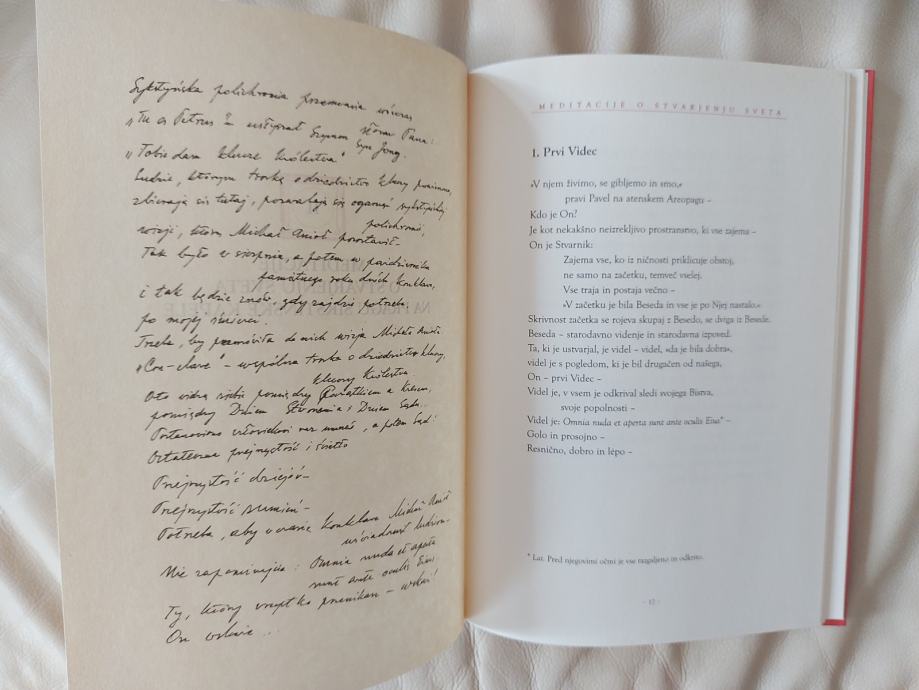 Sykstyńska polichromia przemawia wówczas
słowem Pana:
„Tu es Petrus" – usłyszał Szymon syn Jony.
„Tobie dam klucze Królestwa".
Ludzie, którym troskę o dziedzictwo kluczy powierzono,
zbierają się tutaj, pozwalają się ogarnąć sykstyńskiej
polichromii,
wizji, którą Michał Anioł pozostawił –
Tak było w sierpniu, a potem w październiku
pamiętnego roku dwóch konklawe,
i tak będzie znów, gdy zajdzie potrzeba,
po mojej śmierci.
Trzeba, by przemówiła do nich wizja Michała Anioła
„Con-clave" – wspólna troska o dziedzictwo kluczy,
kluczy Królestwa
Oto widzą siebie pomiędzy Początkiem a Kresem,
pomiędzy Dniem Stworzenia i Dniem Sądu..
Postanowiono człowiekowi raz umrzeć, a potem Sąd!
Ostateczna przejrzystość i światło
Przejrzystość dziejów –
Przejrzystość sumień –
Potrzeba, aby w czasie konklawe Michał Anioł
uświadomił ludziom –
Nie zapominajcie: Omnia nuda et aperta
sunt ante oculis Eius
Ty, który wszystko przenikasz – wskaż!
On wskaże ..
MEDITACIJE O STVARJENJU SVETA
1. Prvi Videc
»V njem živimo, se gibljemo in smo,«
pravi Pavel na atenskem Areopagu –
Kdo je On?
Je kot nekakšno neizrekljivo prostranstvo, ki vse zajema –
On je Stvarnik:
Zajema vse, ko iz ničnosti priklicuje obstoj,
ne samo na začetku, temveč vselej.
Vse traja in postaja večno –
»V začetku je bila Beseda in vse je po Njej nastalo.«
Skrivnost začetka se rojeva skupaj z Besedo, se dviga iz Besede.
Beseda – starodavno videnje in starodavna izpoved.
Ta, ki je ustvarjal, je videl – videl, »da je bila dobra«,
videl je s pogledom, ki je bil drugačen od našega,
On – prvi Videc –
Videl je, v vsem je odkrival sledi svojega Bistva,
svoje popolnosti –
Videl je: Omnia nuda et aperta sunt ante oculis Eius* –
Golo in prosojno –
Resnično, dobro in lepo –
* Lat. Pred njegovimi očmi je vse razgaljeno in odkrito.